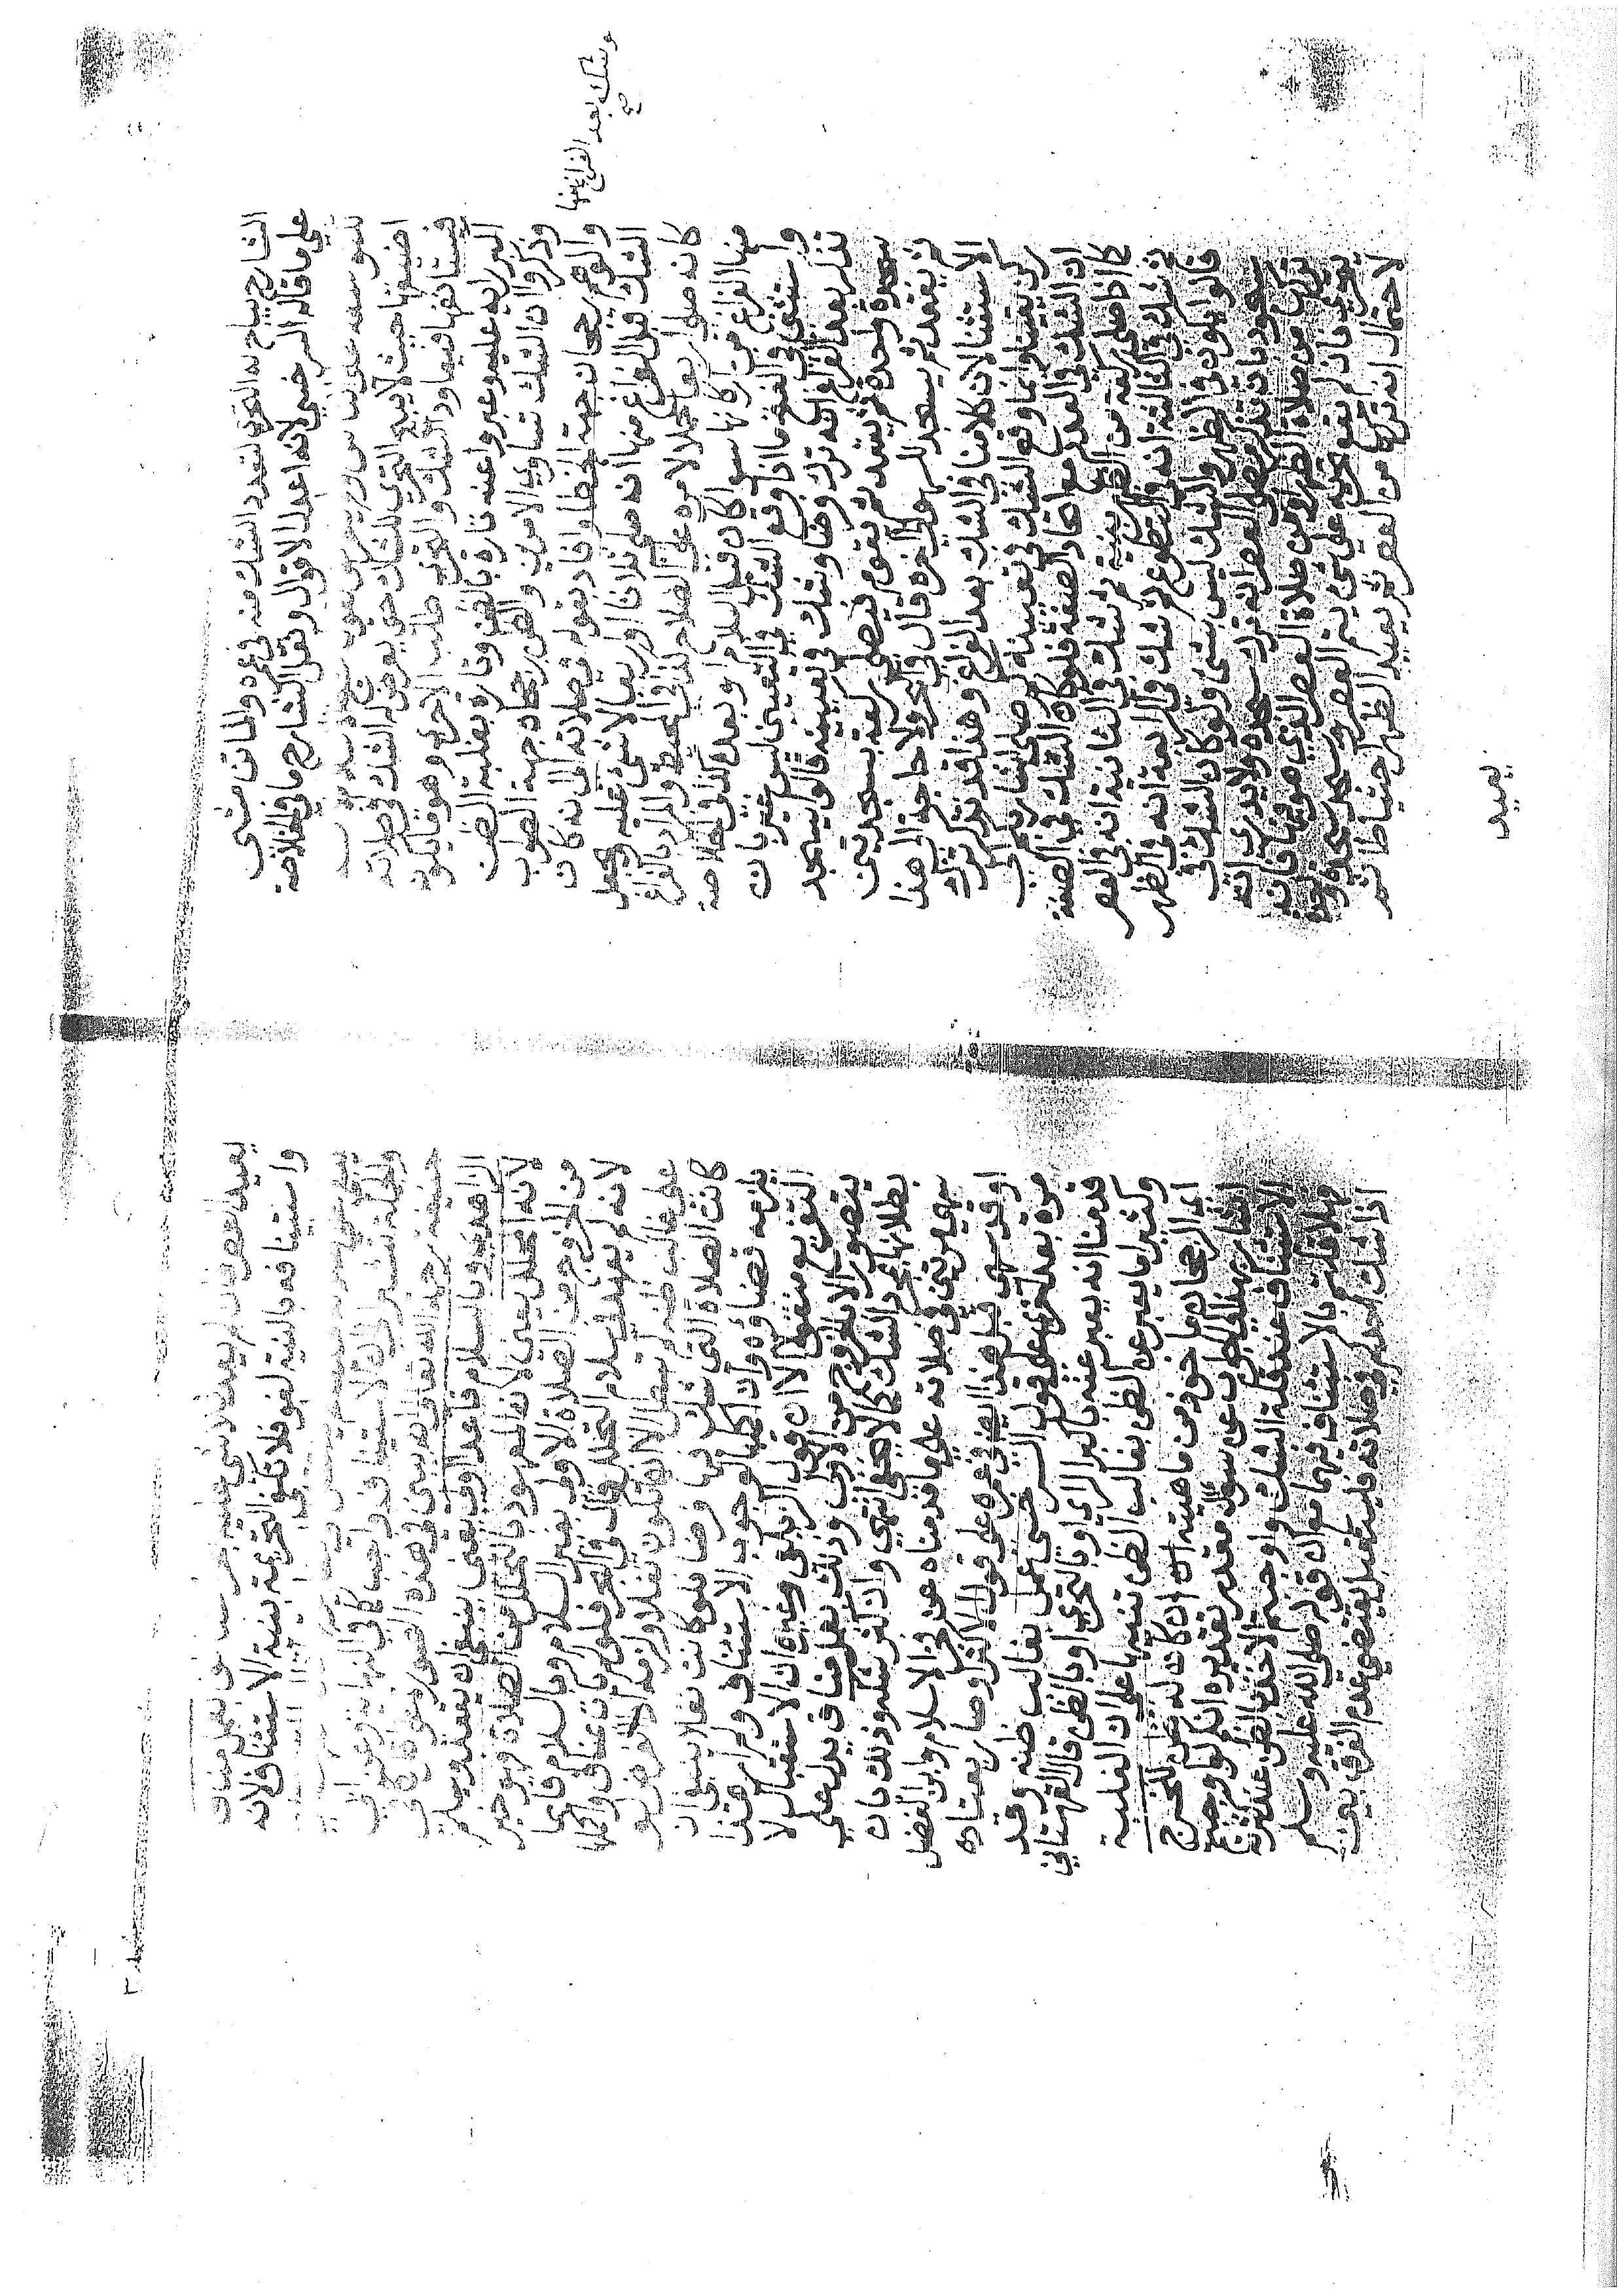 الشارح يباح له التحري لتعدد الشك منه في غيره والماتن مشى
على ما قاله السرخسي لانه اعدل الاقوال ونقل الشارح ما في الخلاصة
حيث لا يبيح التحري للشاك حتى يعرض له الشك في صلاته
فيستانفها فيعاود الشك والتحري طلب الاحرى وهو ما يكون
اكبر رايه عليه وعبروا عنه تارة بالظن وتارة بغلبة الظن
وذكروا ان الشك تساوي الامرين والظن رجحان جهة الصواب
والوهم رجحان جهة الخطا وافاد بقوله في صلاته الى انه كان
وشك بعد الفراغ منها
صح
الشك قبل الفراغ منها انه صلى ثلاثا او اربعا لا شئ عليه ويجعل
كانه صلى اربعا حملا لامره على الصلاح كذا في المحيط والمراد بالفراغ
منها الفراغ من اركانها سوا كان قبل السلام او بعده كذا في الخلاصة
واستثنى في الفتح ما اذا وقع الشك في التعيين ليس غير بان
تذكر بعد الفراغ انه ترك فرضا وشك في تعيينه قالوا يسجد
سجدة واحدة ثم يقعد ثم يقوم فيصلي ركعة بسجدتين
ثم يقعد ثم يسجد للسهو الى اخره قال في البحر ولا حاجة الى هذا
الاستثنا لان كلامنا في الشك بعد الفراغ وهذا قد تذكر ترك
ركن يقينا وانما وقع الشك في تعيينه الشارح الى
ان الشك في العدد مع اتحاد الصفة فلو كان الشك في الصفة
كما اذا صلى ركعة من الظهر بنية ثم شك في الثانية انه في العصر
ثم شك في الثالثة انه في التطوع ثم شك في الرابعة انه في الظهر
قالوا يكون في الظهر والشك ليس بشئ ولو كان الشك في
سجود بان تذكر مصلي العصر انه ترك سجدة ولا يدري انه
ترك من صلاة الظهر او من صلاة العصر الذي هو فيها فانه
يتحرى فان لم يقع تحريه على شئ يتم العصر ويسجد سجدة
لاحتمال انه تركها من العصر ثم يعيد الظهر احتياطا ثم
يعيد
يعيد العصر فان لم يعد لا شئ عليه
واستينافه بالنية لغو فلا تكفي التحريمة بنية الاستئناف لانه
الاستيناف واجب كما في النهاية
حنيفة رحمه الله تعالى في هذه الصورة
الزاهدي وبالسلام قاعدا اولى يعني ينبغي ان يقعد ويسلم
لانه المحلل يعني لانه المعهود بالتحلل من الصلاة فهو خير
من الخروج من الصلاة الاولى بغير السلام وبالسلام قائما
لانه لم يعهد في السلام التحلل وقال في البحر فلو لم يات بمناف واكملها
على غالب ظنه لم تبطل الا انها تكون نفلا ويلزمه اداء الفرض لو
كانت الصلاة التي شك فيها فرضا فلو كانت نفلا ينبغي ان
يلزمه قضاؤه وان اكملها لوجوب الاستئناف ولم ار هذا
التفريع منقولا الا ان قول الزيلعي وغيره ان الاستقبال لا
يتصور الا بالخروج من الاولى وذلك بعمل مناف يدل على
بطلانها بمجرد الشك كما لا يخفى انتهى وان كثر شكه وذلك بان
سهى مرتين في صلاته على ما قدمناه عن فخر الاسلام وابن الفضل
او قد سهى قبل هذا في عمره على قول الاكثر او صار بعتاده
مرة بعد اخرى على قول السرخسي عمل بغالب ظنه وقد
قدمنا انه يعبر عنه باكبر الراي او بالتحري او بالظن قال القهستاني
وكثيرا ما يعبر عن الظن بغالب الظن تنبيها على ان الغلبة
اي الرجحان ماخوذ من ماهيته ان كان له ظن للحرج
اشار بهذا الى الجواب عن سوال مقدر تقديره انكم اوجبتم
الاستئناف عند قلة الشك واوجبتم الاخذ بالظن عند كثرة
وهلا قلتم بالاستئناف فيهما مع ان قوله صلى الله عليه وسلم
اذا شك احدكم في صلاته فليستقبل يقتضي عدم الفرق بين